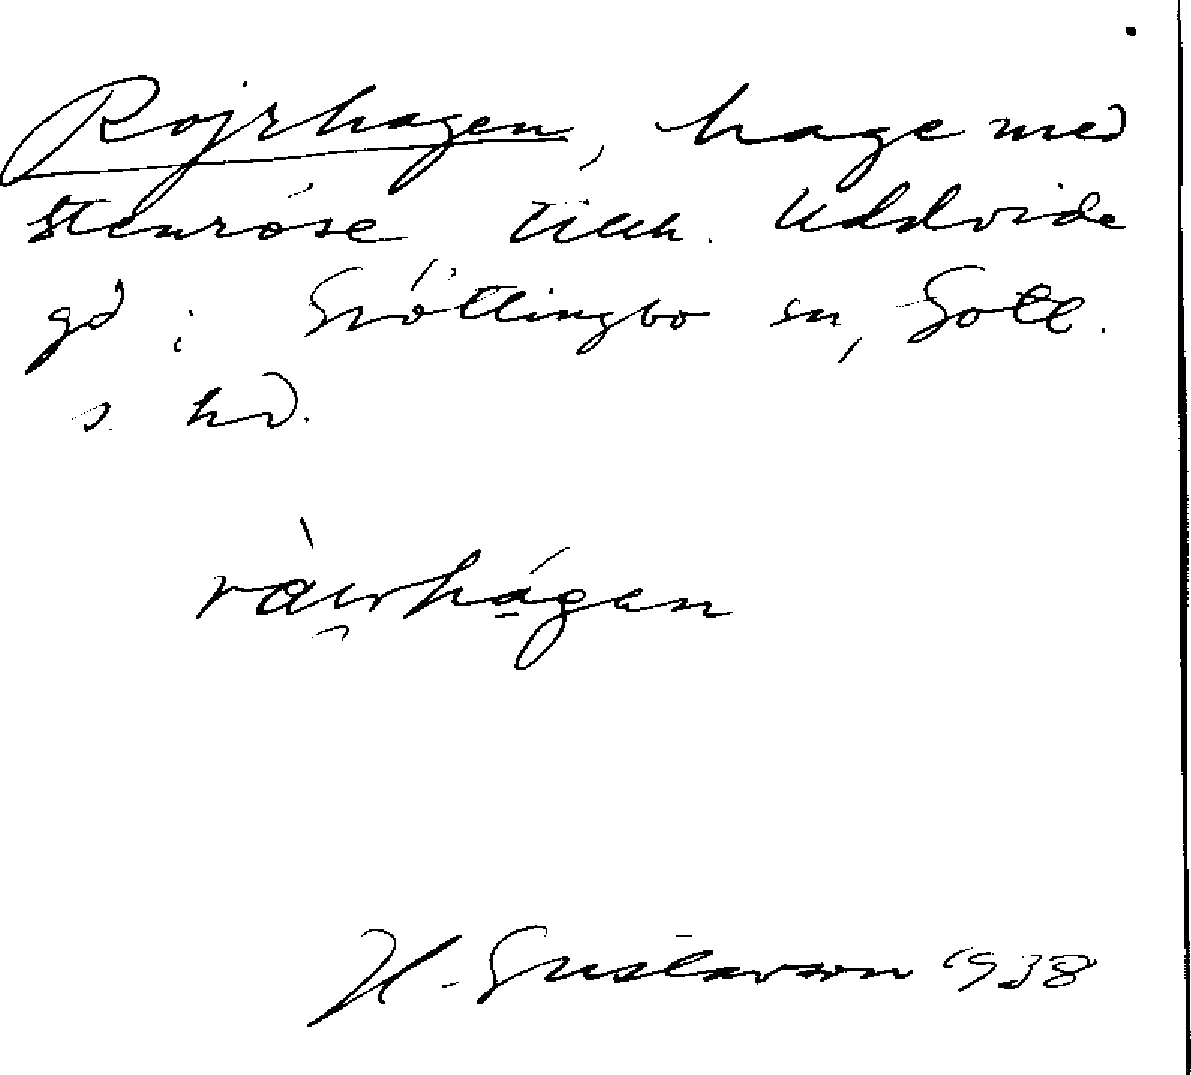 Rojrhagen, hage med
stenröse tillh. Uddvide
gd i Grötlingbo sn, Gotl.
s hd.
H. Gustavson 1938